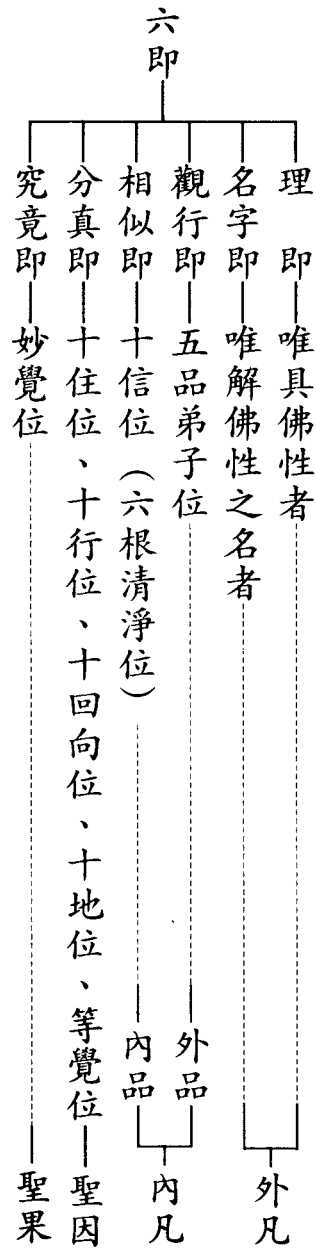 六即
理即 唯具佛性者
名字即 唯解佛性之名者
外凡
觀行即 五品弟子位 外品
相似即 十信位（六根清淨位） 內品
內凡
分真即 十住位、十行位、十回向位、十地位、等覺位 聖因
究竟即 妙覺位 聖果